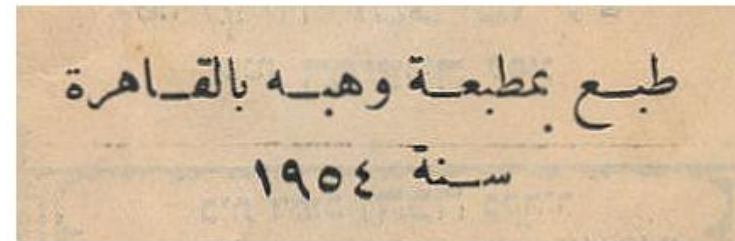 طبع بمطبعة وهبه بالقاهرة
سنة ١٩٥٤